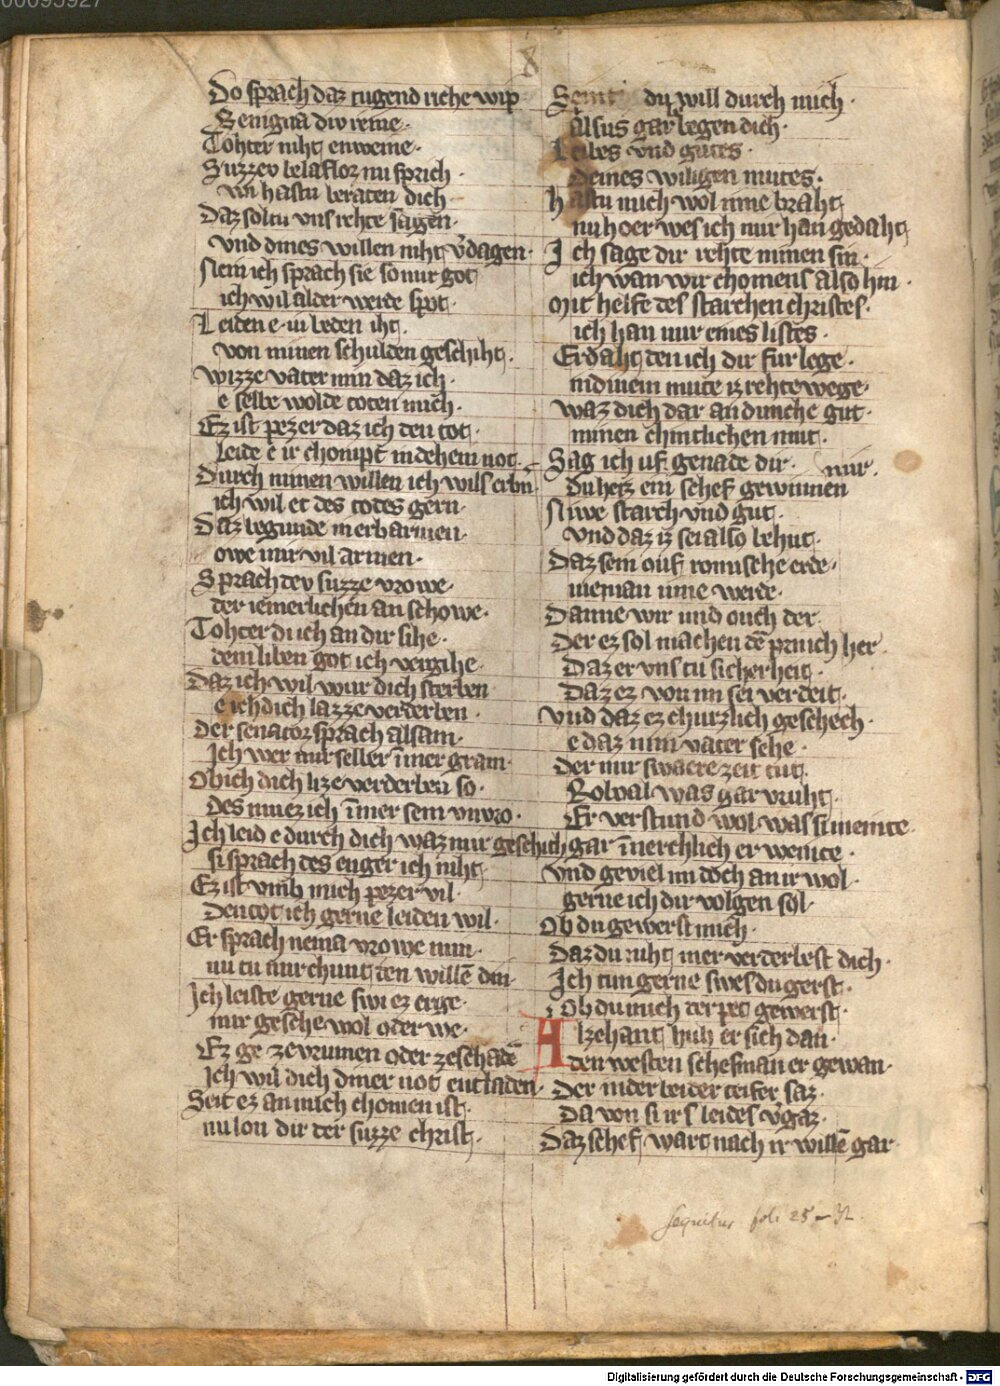 00095927
8
Do sprach daz tugend riche wip
Benigna div reine·
Tohter niht enweine·
Suzzev belaflor nu sprich·
wi hastu beraten dich·
Daz soltu uns rehte sagen·
vnd dines willen niht v̄dagen·
Nein ich sprach sie so mir got
ich wil alder werlde spot·
Leiden e· iu beden iht·
von minen schulden geschiht·
Wizze vater min daz ich·
e selbe wolde toten mich·
Ez ist pezzer daz ich den tot·
leide e ir chompt in dehein not·
Durch minen willen ich wils erbin̄
ich wil et des todes gern·
Daz begunde in erbarmen·
owe mir vil armen·
Sprach dev suzze vrowe·
der iemerlichen an schowe·
Tohter di ich an dir sihe·
dem liben got ich vergihe·
Daz ich wil vvur dich sterben
e ich dich lazze verderben·
Der senator sprach alsam·
Ich wer mir selber im̄er gram·
Ob ich dich lize verderben so·
des muez ich im̄er sein vnvro·
Ich leid e durch dich waz mir geschich
si sprach des enger ich niht·
Ez ist vmb mich pezer vil·
Den tot ich gerne leiden wil·
Er sprach nema vrowe min·
nu tu mir chunt den willē din·
Ich leiste gerne swi ez erge·
mir geschehe wol oder we·
Ez ge ze vrumen oder ze schadē
Ich wil dich diner not entladen·
Seit ez an mich chomen ist·
nu lon dir der suzze christ·
Seint du will durch mich·
Alsus gar begen dich·
Leibes vnd gutes·
Deines willigen mutes·
hastu mich wol inne braht
nu hoer wes ich mir han gedaht
Ich sage dir rehte minen sin·
ich wan wir chomens also hin·
Mit helfe des starchen christes·
ich han mir eines listes·
Erdaht den ich dir fur lege·
in dinem mute iz rehte wege·
waz dich dar an dunche gut·
minen chintlichen mut·
Sag ich uf genade dir· mir·
Du heiz ein schef gewinnen
Niwe starch vnd gut·
vnd daz iz sei also behut·
Daz sein ouf romische erde·
nieman inne werde·
Danne wir und ouch der·
Der ez sol machen dē prinich her
Daz er vns tu sicherheit·
Daz ez von im sei verdeit·
Vnd daz ez churzlich geschech·
e daz min vater sehe·
Der mir swaere zeit tut·
Robal was gar vruht·
Er verstund wol was si meinte·
gar in̄erchlich er weinte·
Vnd geviel im doch an ir wol·
gerne ich dir volgen sol·
Ob du gewerst mich·
Daz du niht mer verderbest dich·
Ich tun gerne swes du gerst·
Ob du mich der pet gewerst·
Alzehant hub er sich dan·
den westen schefman er gewan·
Der inder beider teifer saz·
Da von si irs leides v̄gaz·
Daz schef wart nach ir willē gar
sequitur fol. 25–32.
Digitalisierung gefördert durch die Deutsche Forschungsgemeinschaft - DFG